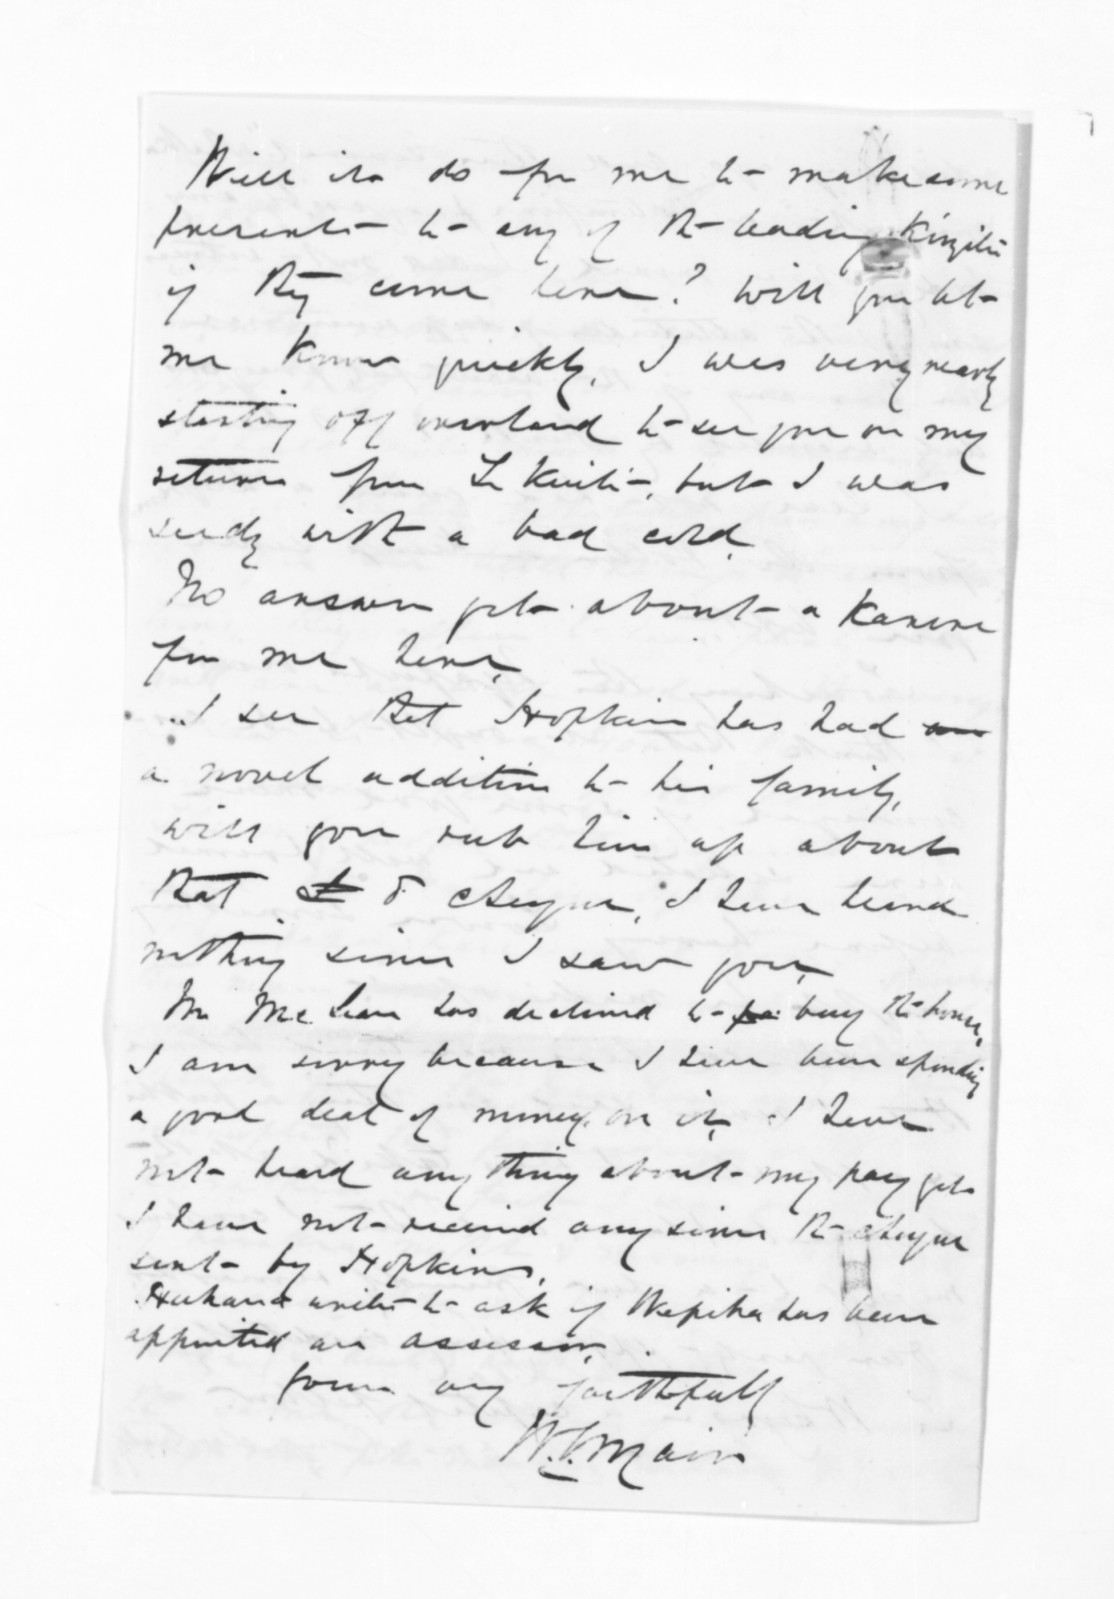 Will it do for me to make some
presents to any of the leading Kingites
if they come here? Will you let
me know quickly, I was very nearly
starting off overland to see you on my
return from Te Kuiti, but I was
seedy with a bad cold.
No answer yet about a Karere
for me here,
I see that Hopkins has had
a novel addition to his family,
will you rub him up about
that cheque, I have heard
nothing since I saw you,
Mr McLean has declined to buy the house,
I am sorry because I have been spending
a good deal of money on it, I have
not heard anything about my pay yet
I have not received any since the cheque
sent by Hopkins,
writes to ask if Wepiha has been
appointed an assessor,
Yours very faithfully
W.G. Mair